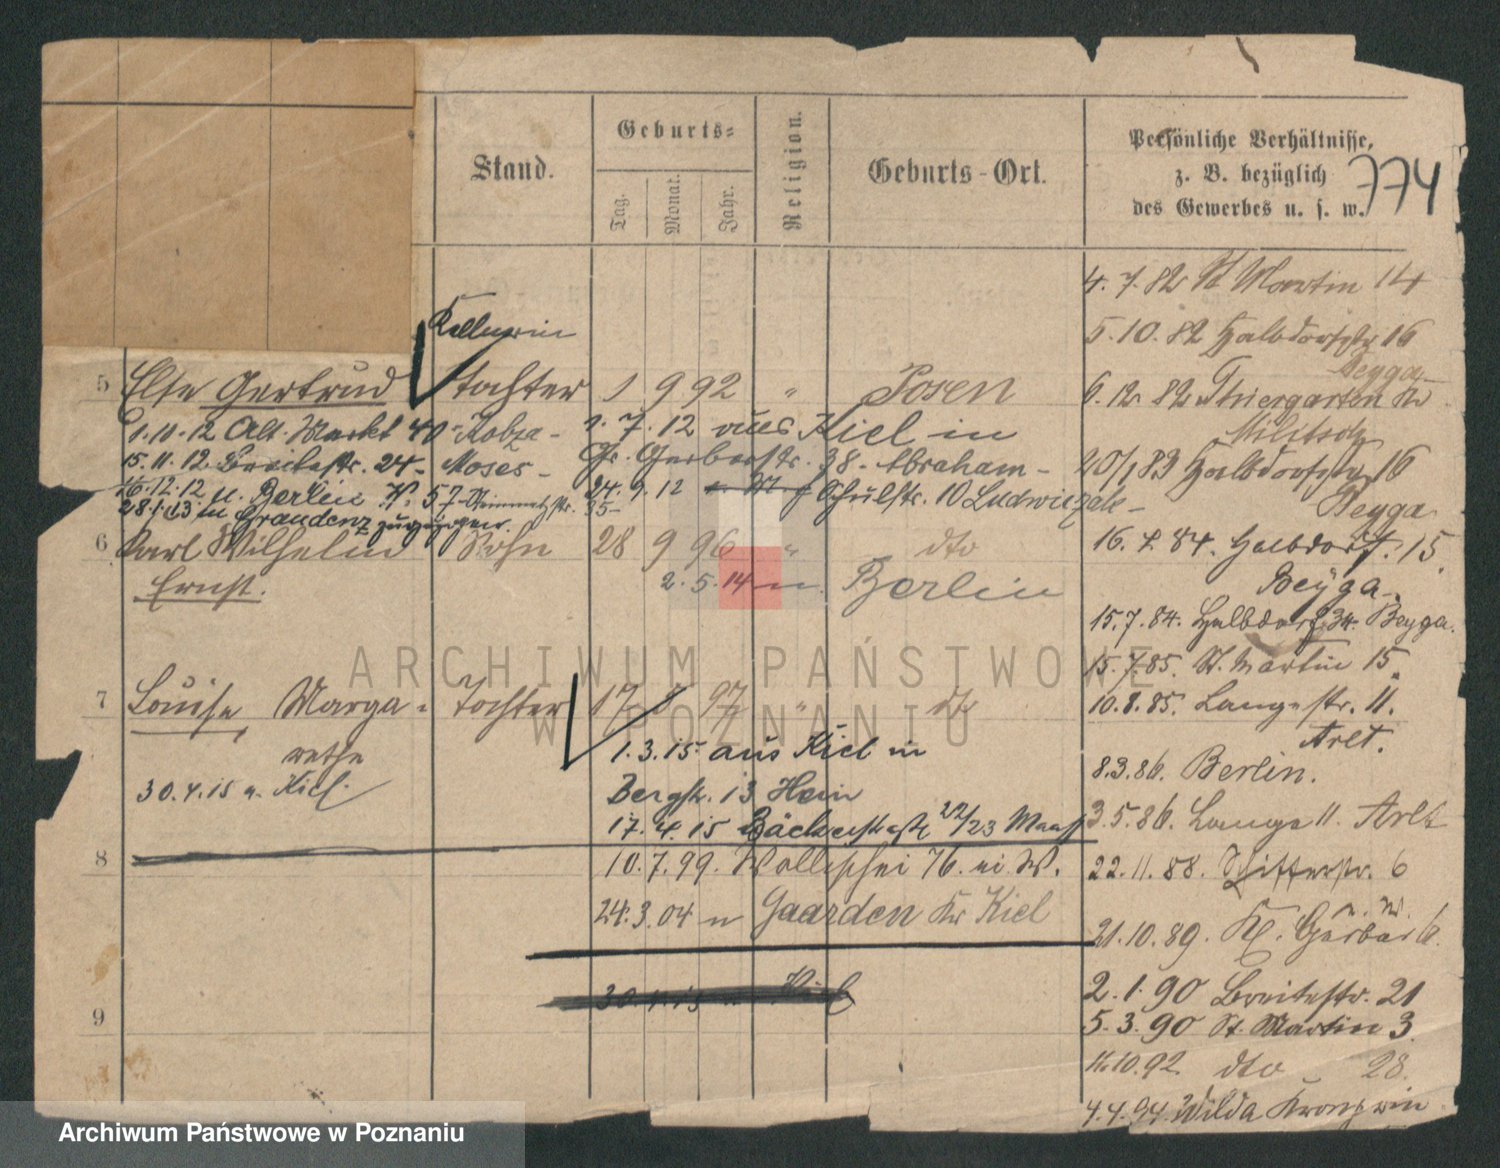 Stand.
Geburts-
Tag.
Monat.
Jahr.
Religion.
Geburts-Ort.
Persönliche Verhältnisse,
z. B. bezüglich
des Gewerbes u. s. w.
774
Kellnerin
5 Else Gertrud Tochter 1 9 92 " Posen
1.10.12 Alt. Markt 40 - Kobza - 2.7.12 aus Kiel in
15.11.12 Breitestr. 24 - Moses - Gr. Gerberstr. 38 - Abraham -
16.12.12 n. Berlin W. 57 Steinmetzstr. 35 - 24.9.12 Schulstr. 10
28.1.13 n Graudenz zurück
6 Karl Wilhelm Sohn 28 9 96 " dto
Ernst. 2.5.14 n. Berlin
7 Louise Marga- Tochter 17 8 97 " dto
rethe 1.3.15 aus Kiel in
30.4.15 n. Kiel. Bergstr. 13 Hein
17.4.15 Bäckerstr. 22/23
8
10.7.99. 76.
24.3.04 n Gaarden Kr Kiel
30.4.15 n Kiel
9
4.7.82 St Martin 14
5.10.82 Halbdorfstr 16
Beyga
6.12.82 Thiergarten
Militsch
20/1 83 Halbdorfstr 16
Beyga
16.4.84. Halbdorf. 15.
Beyga.
15.7.84. Halbdorf. 34. Beyga.
15.7.85. St. Martin 15.
10.8.85. Langestr. 11.
Arlt.
8.3.86. Berlin.
3.5.86. Lange 11. Arlt
22.11.88. Schifferstr. 6
21.10.89. Kl. Gerber 6.
2.1.90 Breitestr. 21
5.3.90 St. Martin 3.
11.10.92. dto 28.
4.4.94. Wilda
ARCHIWUM PAŃSTWOWE
W POZNANIU
Archiwum Państwowe w Poznaniu